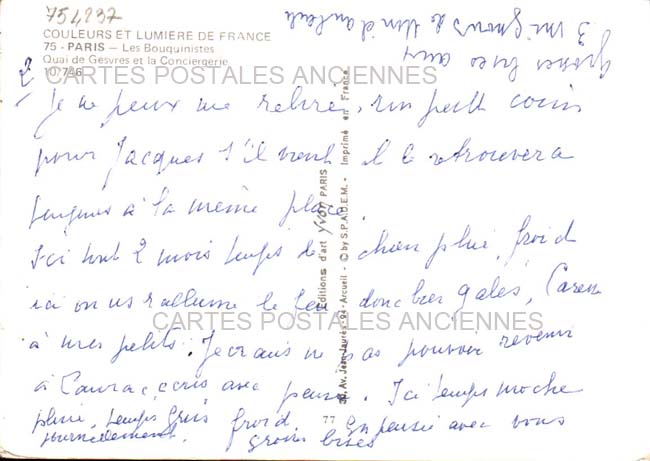 754237
COULEURS ET LUMIERE DE FRANCE
75 - PARIS — Les Bouquinistes
Quai de Gesvres et la Conciergerie
10.746
CARTES POSTALES ANCIENNES
2
Je ne peux me un petit coin
pour Jacques s'il vient il le retrouvera
toujours à la même place
Ici tout 2 mois temps de chien pluie, froid
ici on rallume le feu, donc bien
à mes petits. Je crains ne pas pouvoir revenir
à avec Ici temps moche
pluie, temps gris froid. En pensée avec vous
journellement. gros bises
CARTES POSTALES ANCIENNES
Editions d'art YVON PARIS
Av. Jean-Jaurès-94-Arcueil - © by S.P.A.D.E.M. - Imprimé en France
77
3 mignons de
grosses bises aux